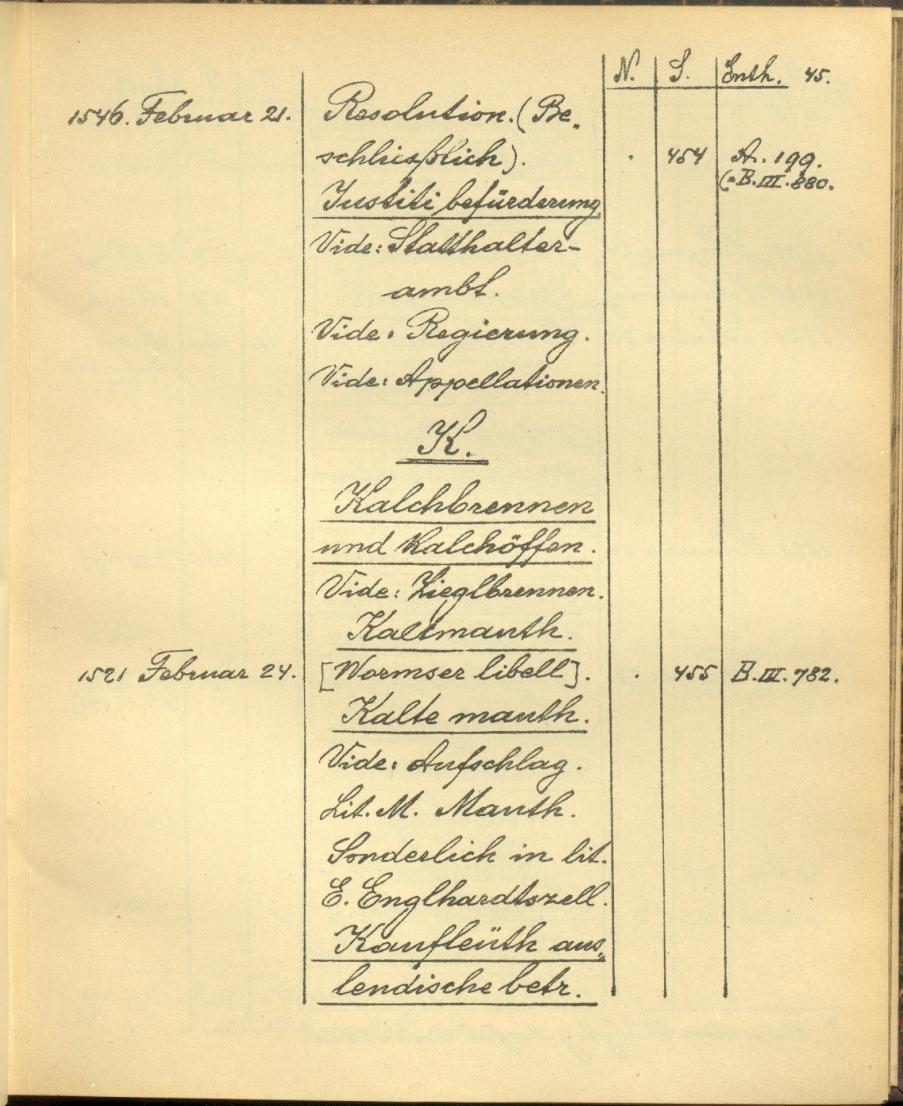 N. S. Enth. 45.
1546. Februar 21. Resolution. (Be„
schließlich). . 454 A. 199.
(= B. III. 880.
Justiti befürderung
Vide: Statthalter-
ambt.
Vide: Regierung.
Vide: Appellationen.
K.
Kalchbrennen
und Kalchöffen.
Vide: Zieglbrennen.
Kaltmauth.
1521 Februar 24. [Wormser libell]. . 455 B. III. 782.
Kalte mauth.
Vide: Aufschlag.
Lit. M. Mauth.
Sonderlich in lit.
E. Englhardtszell.
Kaufleüth aus„
lendische betr.